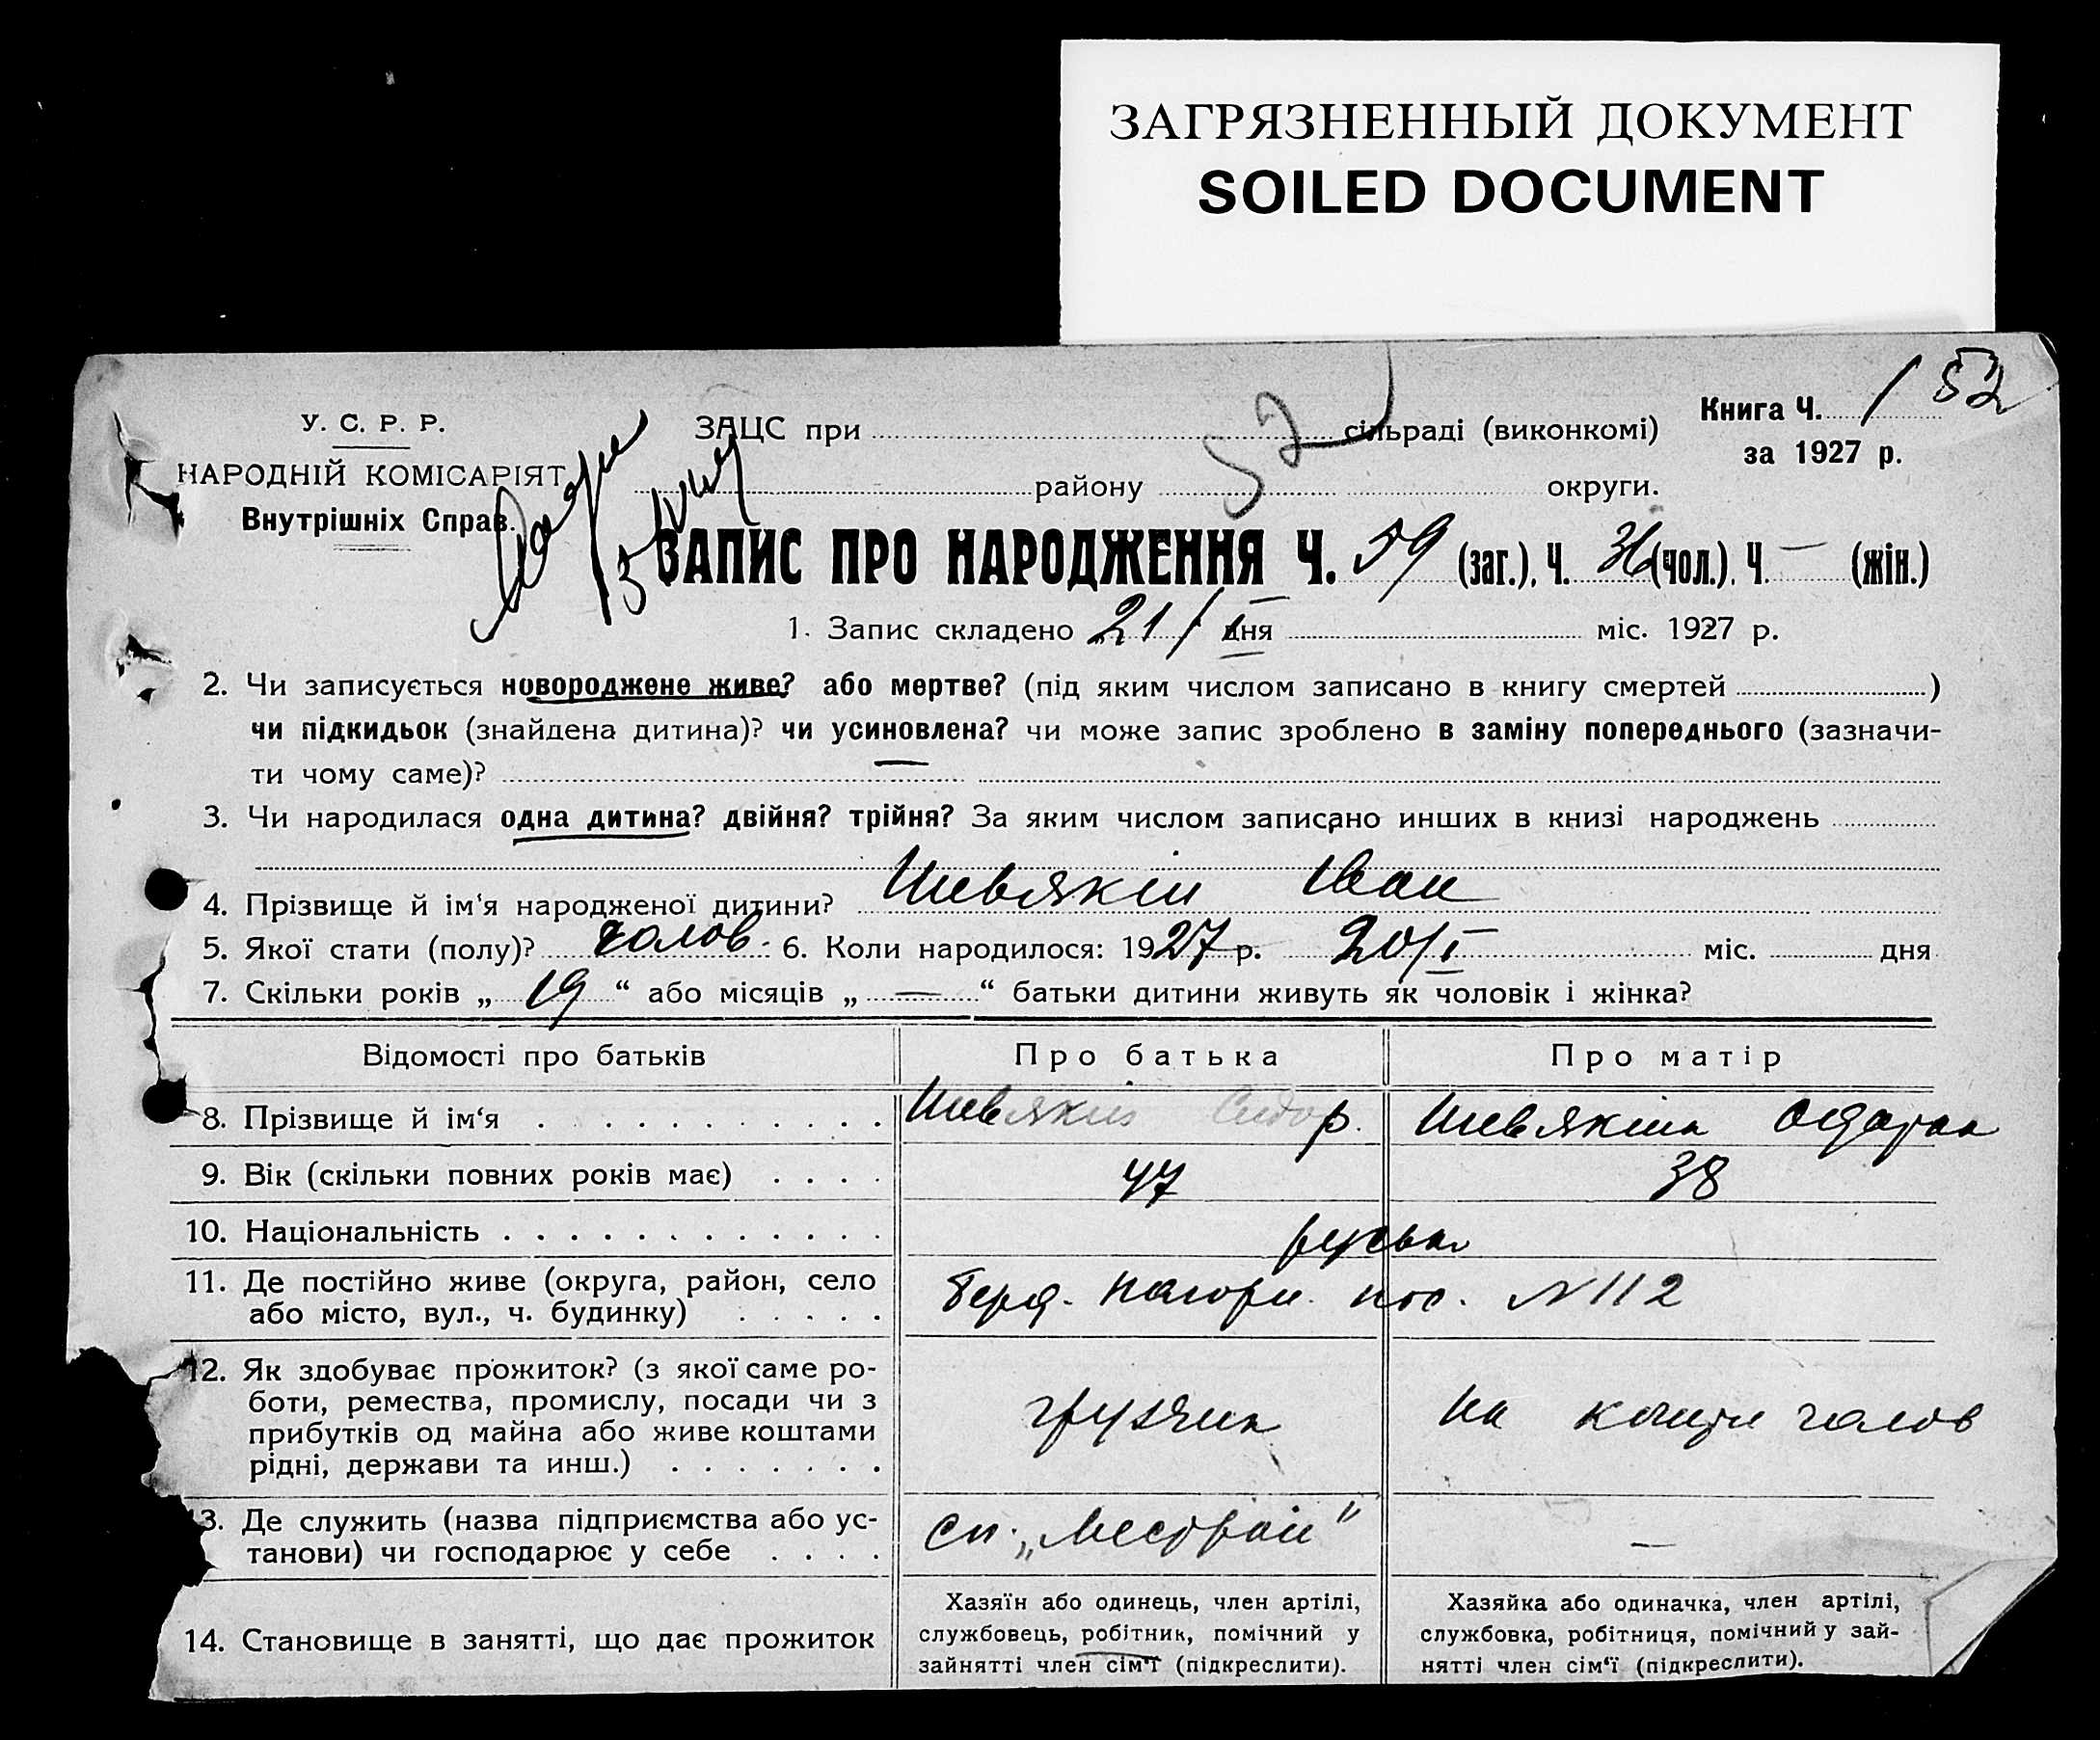 ЗАГРЯЗНЕННЫЙ ДОКУМЕНТ
SOILED DOCUMENT
У. С. Р. Р.
НАРОДНІЙ КОМІСАРІЯТ
Внутрішніх Справ.
ЗАЦС при сільраді (виконкомі)
району округи.
52
Книга Ч. 1 52
за 1927 р.
ЗАПИС ПРО НАРОДЖЕННЯ Ч. 59 (заг.), Ч. 36 (чол.), Ч. — (жін.)
1. Запис складено „21/I дня міс. 1927 р.
2. Чи записується новороджене живе? або мертве? (під яким числом записано в книгу смертей )
чи підкидьок (знайдена дитина)? чи усиновлена? чи може запис зроблено в заміну попереднього (зазначи-
ти чому саме)? —
3. Чи народилася одна дитина? двійня? трійня? За яким числом записано инших в книзі народжень
4. Прізвище й ім'я народженої дитини? Шевякін Іван
5. Якої стати (полу)? Чолов. 6. Коли народилося: 1927 р. 20/I міс. дня
7. Скільки років „ 19 “ або місяців „ — “ батьки дитини живуть як чоловік і жінка?
Відомості про батьків Про батька Про матір
8. Прізвище й ім‘я . . . . . . . . . . . Шевякин Сидор. Шевякіна Одарка
9. Вік (скільки повних років має) . . . . 47 38
10. Національність . . . . . . . . . . . .
11. Де постійно живе (округа, район, село
або місто, вул., ч. будинку) . . . . . Берд. Нагорн. пос. N 112
12. Як здобуває прожиток? (з якої саме ро-
боти, ремества, промислу, посади чи з
прибутків од майна або живе коштами
рідні, держави та инш.) . . . . . . . грузчик На кошти чолов
13. Де служить (назва підприємства або ус-
танови) чи господарює у себе . . . . —
14. Становище в занятті, що дає прожиток
Хазяїн або одинець, член артілі,
службовець, робітник, помічний у
зайнятті член сім‘ї (підкреслити).
Хазяйка або одиначка, член артілі,
службовка, робітниця, помічний у зай-
нятті член сім‘ї (підкреслити).